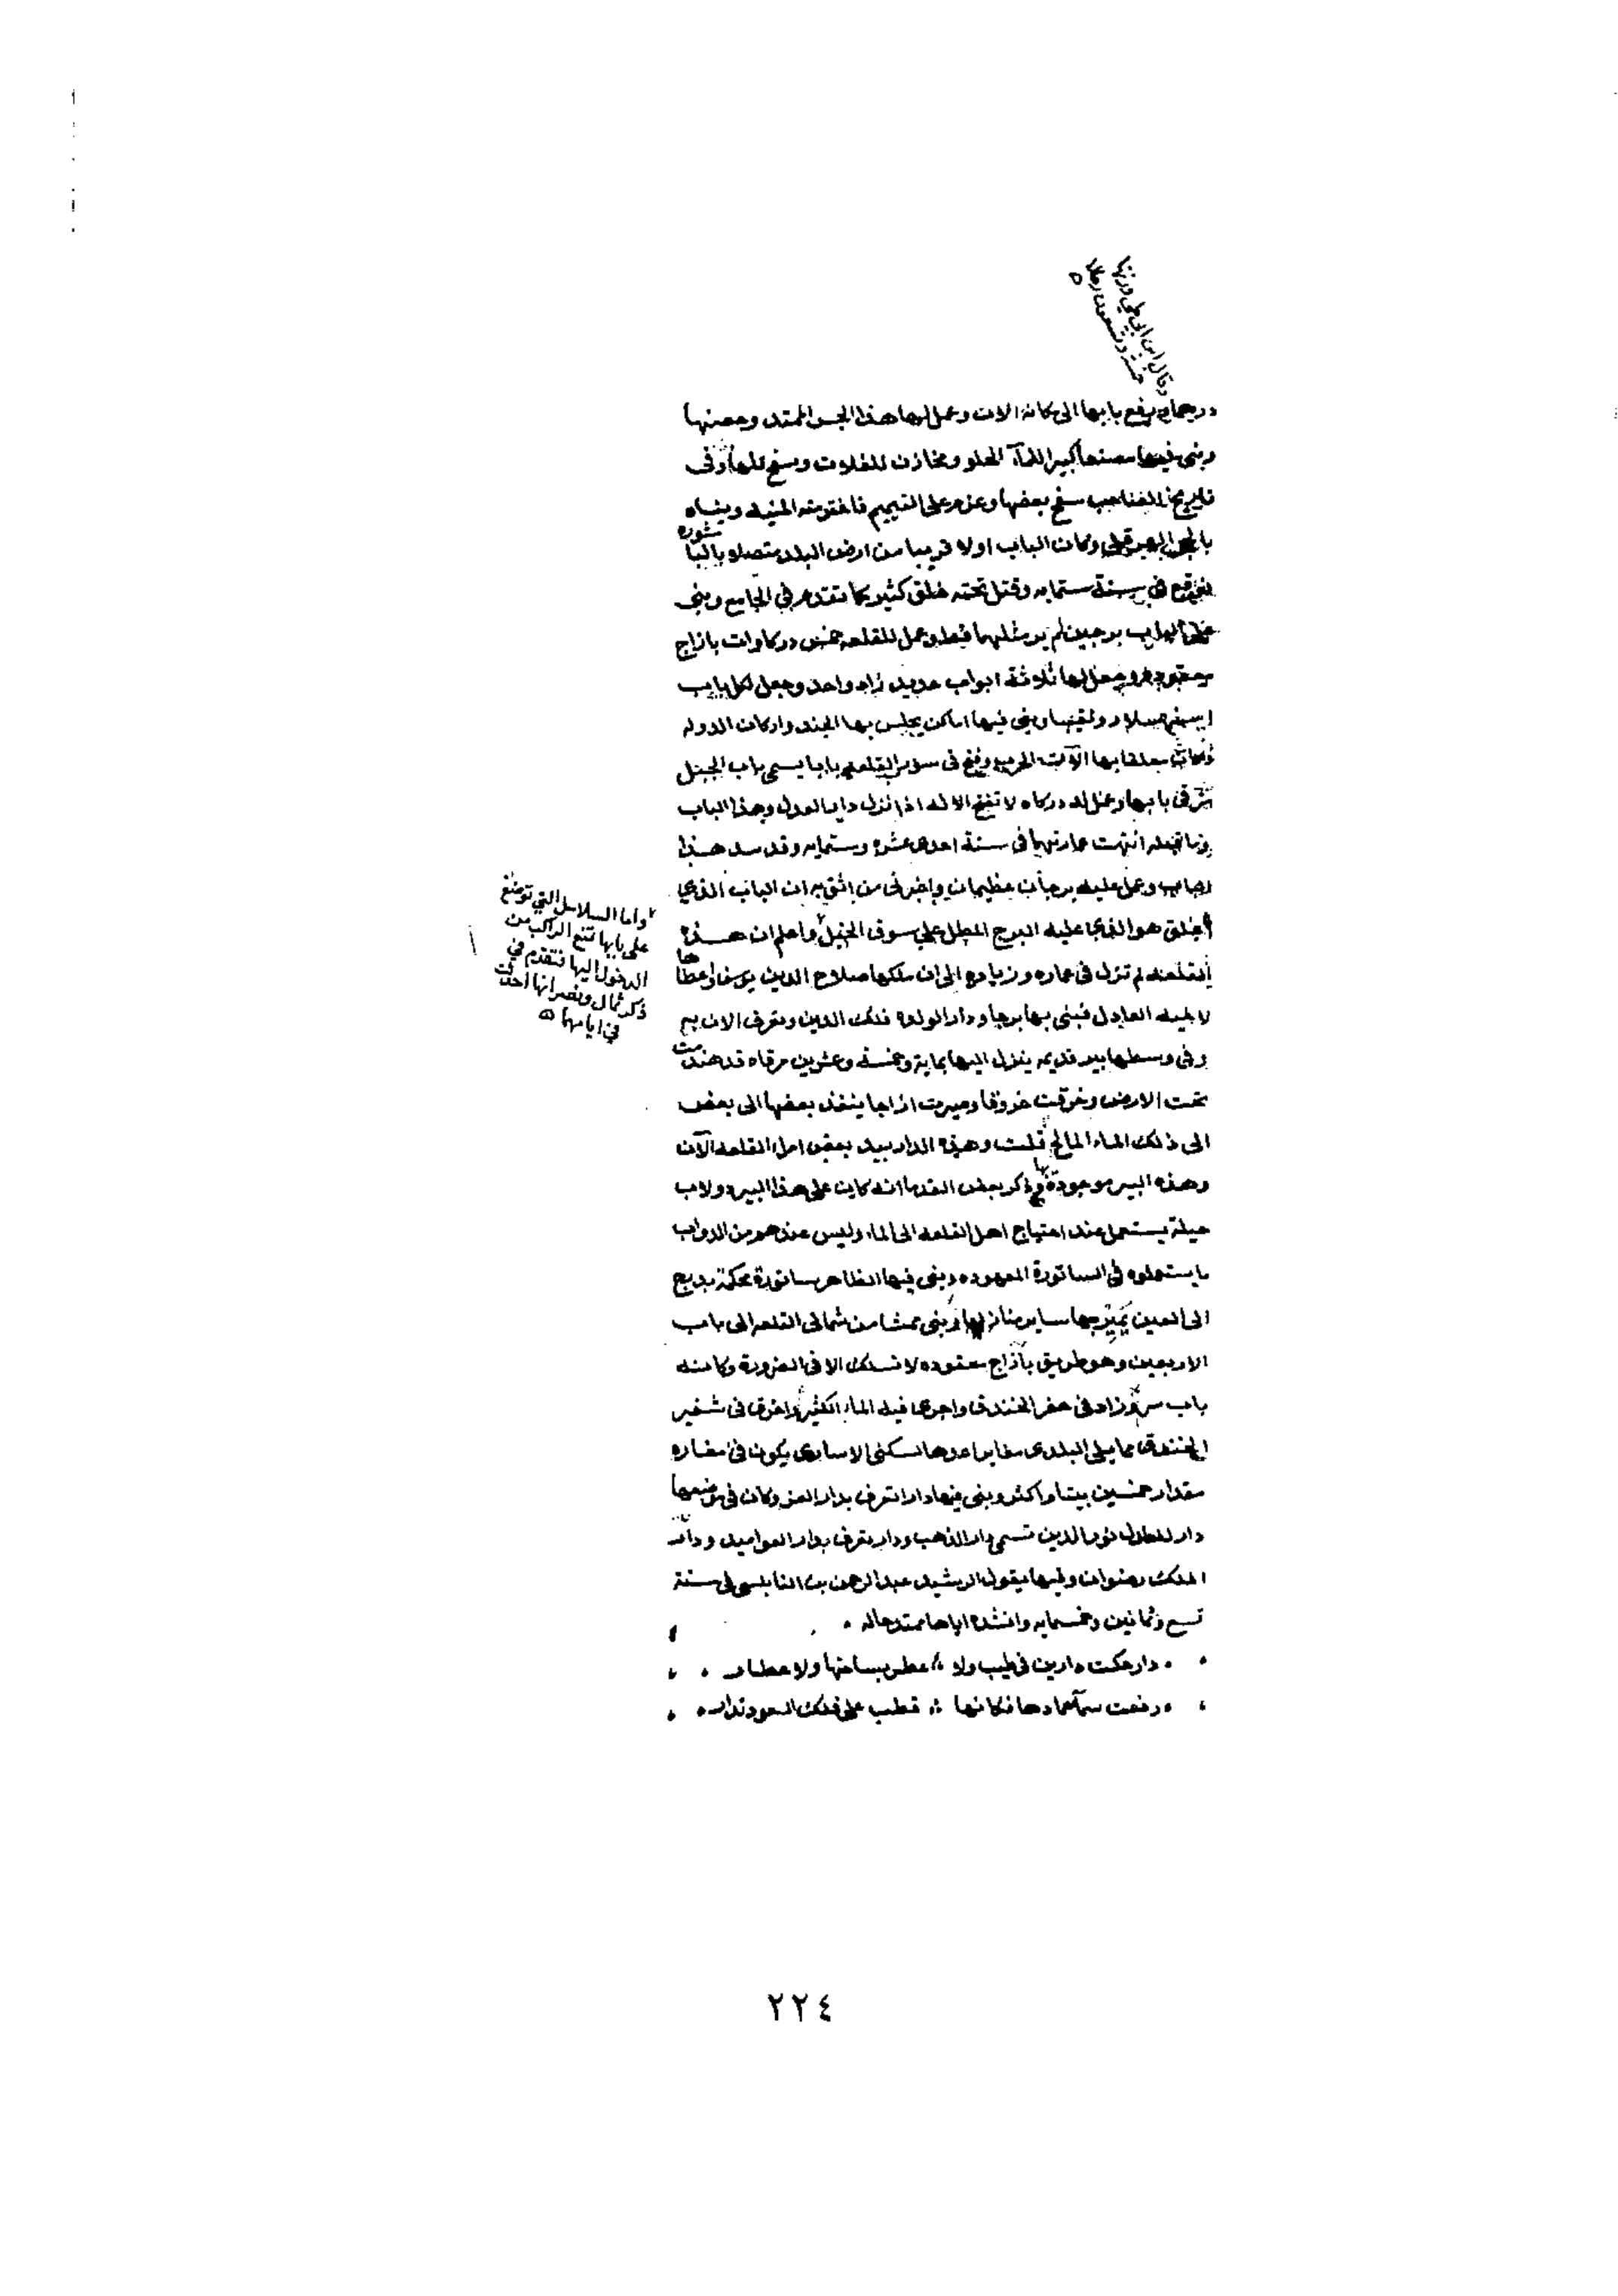 وقال ابن ابي طي وزنها
خمسة وتسعون رطلا
ورفع بابها الى مكانه الان وعمل لها هذا الجسر الممتد وحصنها
وبنى فيها مصنعا كبيرا للماء الحلو ومخازن للغلات وسفح تلها وفى
تاريخ الصاحب سفح بعضها وعزم على التتميم فاخترمته المنية وبناه
بالحجر الهرقلي وكان الباب اولا قريبا من ارض البلد متصلا بالباشوره
فوقع في سنة ستمايه وقتل تحته خلق كثير كما تقدم في الجامع وبنى
على الباب برجين لم ير مثلهما قط وعمل للقلعه خمس دركاوات بازاج
معقوده وجعل لها ثلاثة ابواب حديد زاد واحد وجعل لكل باب
اسفهسلار ونقيبا وبنى فيها اماكن يجلس بها الجند واركان الدوله
وكان معلقا بها آلات الحرب وفتح فى سور القلعه بابا يسمى باب الجبل
شرقى بابها وعمل له دركاه لا تفتح الا له اذا نزل دار العدل وهذا الباب
وما قبله انتهت عمارتهما فى سنة احدى عشره وستمايه وقد سد هذا
الباب وعمل عليه برجان عظيمان واخبرنى من اثق به ان الباب الذي
اغلق هو الذي عليه البرج المطل علي سوق الخيل واعلم ان هذه
القلعه لم تزل فى عماره وزياده الى ان ملكها صلاح الدين يوسف واعطاها
لاخيه العادل فبنى بها برجا ودار الولده فلك الدين وتعرف الان به
وفى وسطها بير قديمه ينزل اليها بماية وخمسة وعشرين مرقاه قد هندمت
تحت الارض وخرقت خروقا وصيرت ازاجا ينفذ بعضها الى بعض
الى ذلك الماء المالح قلت وهذه الدار بيد بعض امراء القلعه الآن
وهذه البير موجودة بها وذكر بعض القدما انه كان على هذا البير دولاب
حيلة يستعمل عند احتياج اهل القلعه الى الماء وليس عندهم من الدواب
ما يستعملوه في الساتورة المعهوده وبنى فيها الظاهر ساتورة محكمة بدرج
الى العين يميز بها ساير منازلها وبنى ممشا من شمالى القلعه الى باب
الاربعين وهو طريق بآزاج معقوده لا تسلك الا فى الضرورة وكانه
باب سر وزاد فى حفر الخندق واجرى فيه الماء الكثير واخرق فى شفير
الخندق مما يلى البلدى مغاير اعدها لسكنى الاسارى يكون فى مغاره
مقدار خمسين بيتا واكثر وبنى فيها دارا تعرف بدار العز وكان فى موضعها
دار للعادل نور الدين تسمى دار الذهب ودار تعرف بدار العواميد ودار
الملك رضوان وفيها يقول الرشيد عبد الرحمن بن النابلسى فى سنة
تسع وثمانين وخمسمايه وانشده اياها ممتدحا له
دار حكت دارين فى طيب ولا عطر بساحتها ولا عطار
رفعت سماء عمادها فكانها قطب على فلك السعود تدار
واما السلاسل التي توضع
على بابها تمنع الراكب من
الدخول اليها فتقدم في
ذكر ثمال ونصر انها احدثت
في ايامهما
٢٢٤